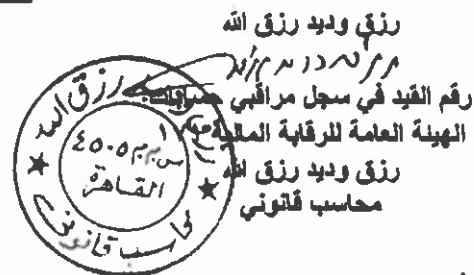 رزق وديد رزق الله
رقم القيد في سجل مراقبي حسابات
الهيئة العامة للرقابة المالية
رزق وديد رزق الله
محاسب قانوني
رزق الله
س.م.م ٤٥٠٥
القاهرة
محاسب قانوني